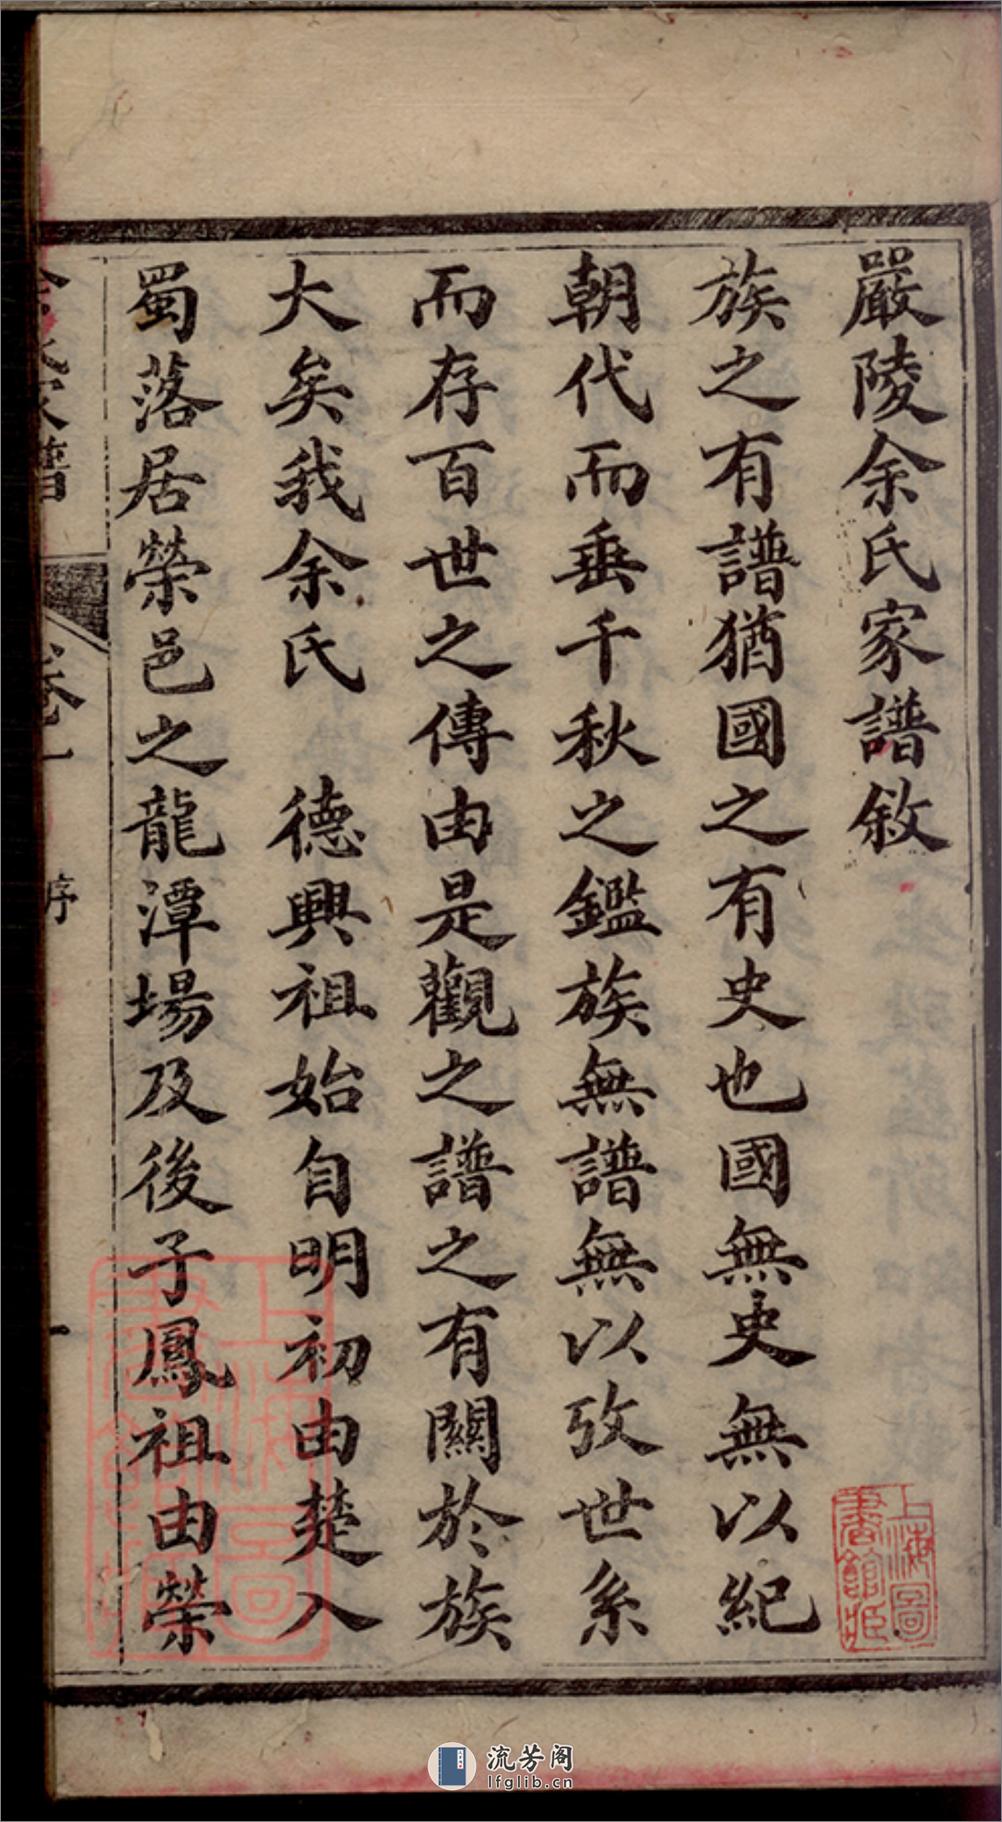 嚴陵余氏家譜敘
族之有譜猶國之有史也國無史無以紀
朝代而垂千秋之鑑族無譜無以攷世系
而存百世之傳由是觀之譜之有關於族
大矣我余氏　德興祖始自明初由楚入
蜀落居榮邑之龍潭場及後子鳳祖由榮
余氏家譜　卷一　序　一
上海圖書館藏
上海圖書館藏
流芳阁
lfglib.cn